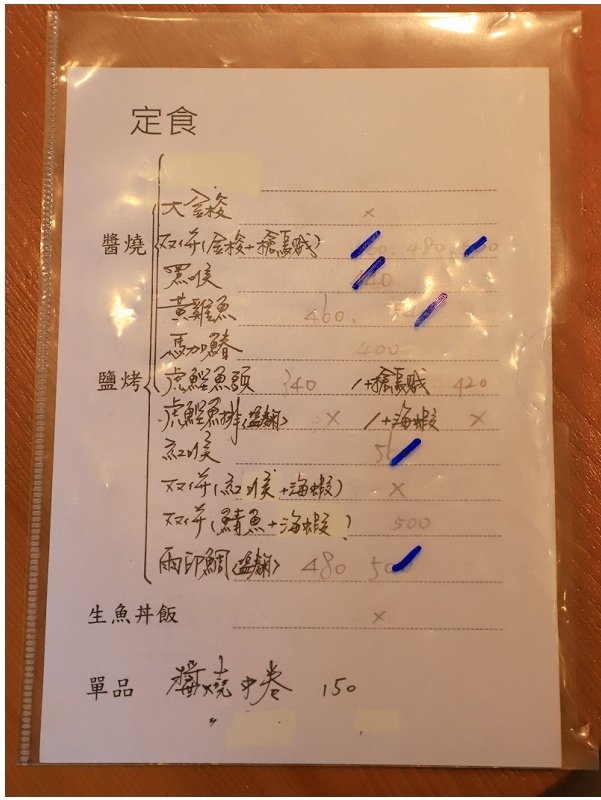 定食
大金梭 ×
醬燒 双併(金梭+槍烏賊) 480、
黑喉
黃雞魚 460、
馬加鰆 400
鹽烤 虎鰹魚頭 340 /+槍烏賊 420
虎鰹魚排(鹽麴) × /+海蝦 ×
紅喉
双併(紅喉+海蝦) ×
双併(鯖魚+海蝦) 500
雨印鯛(鹽麴) 480
生魚丼飯 ×
單品 醬燒中卷 150
〃